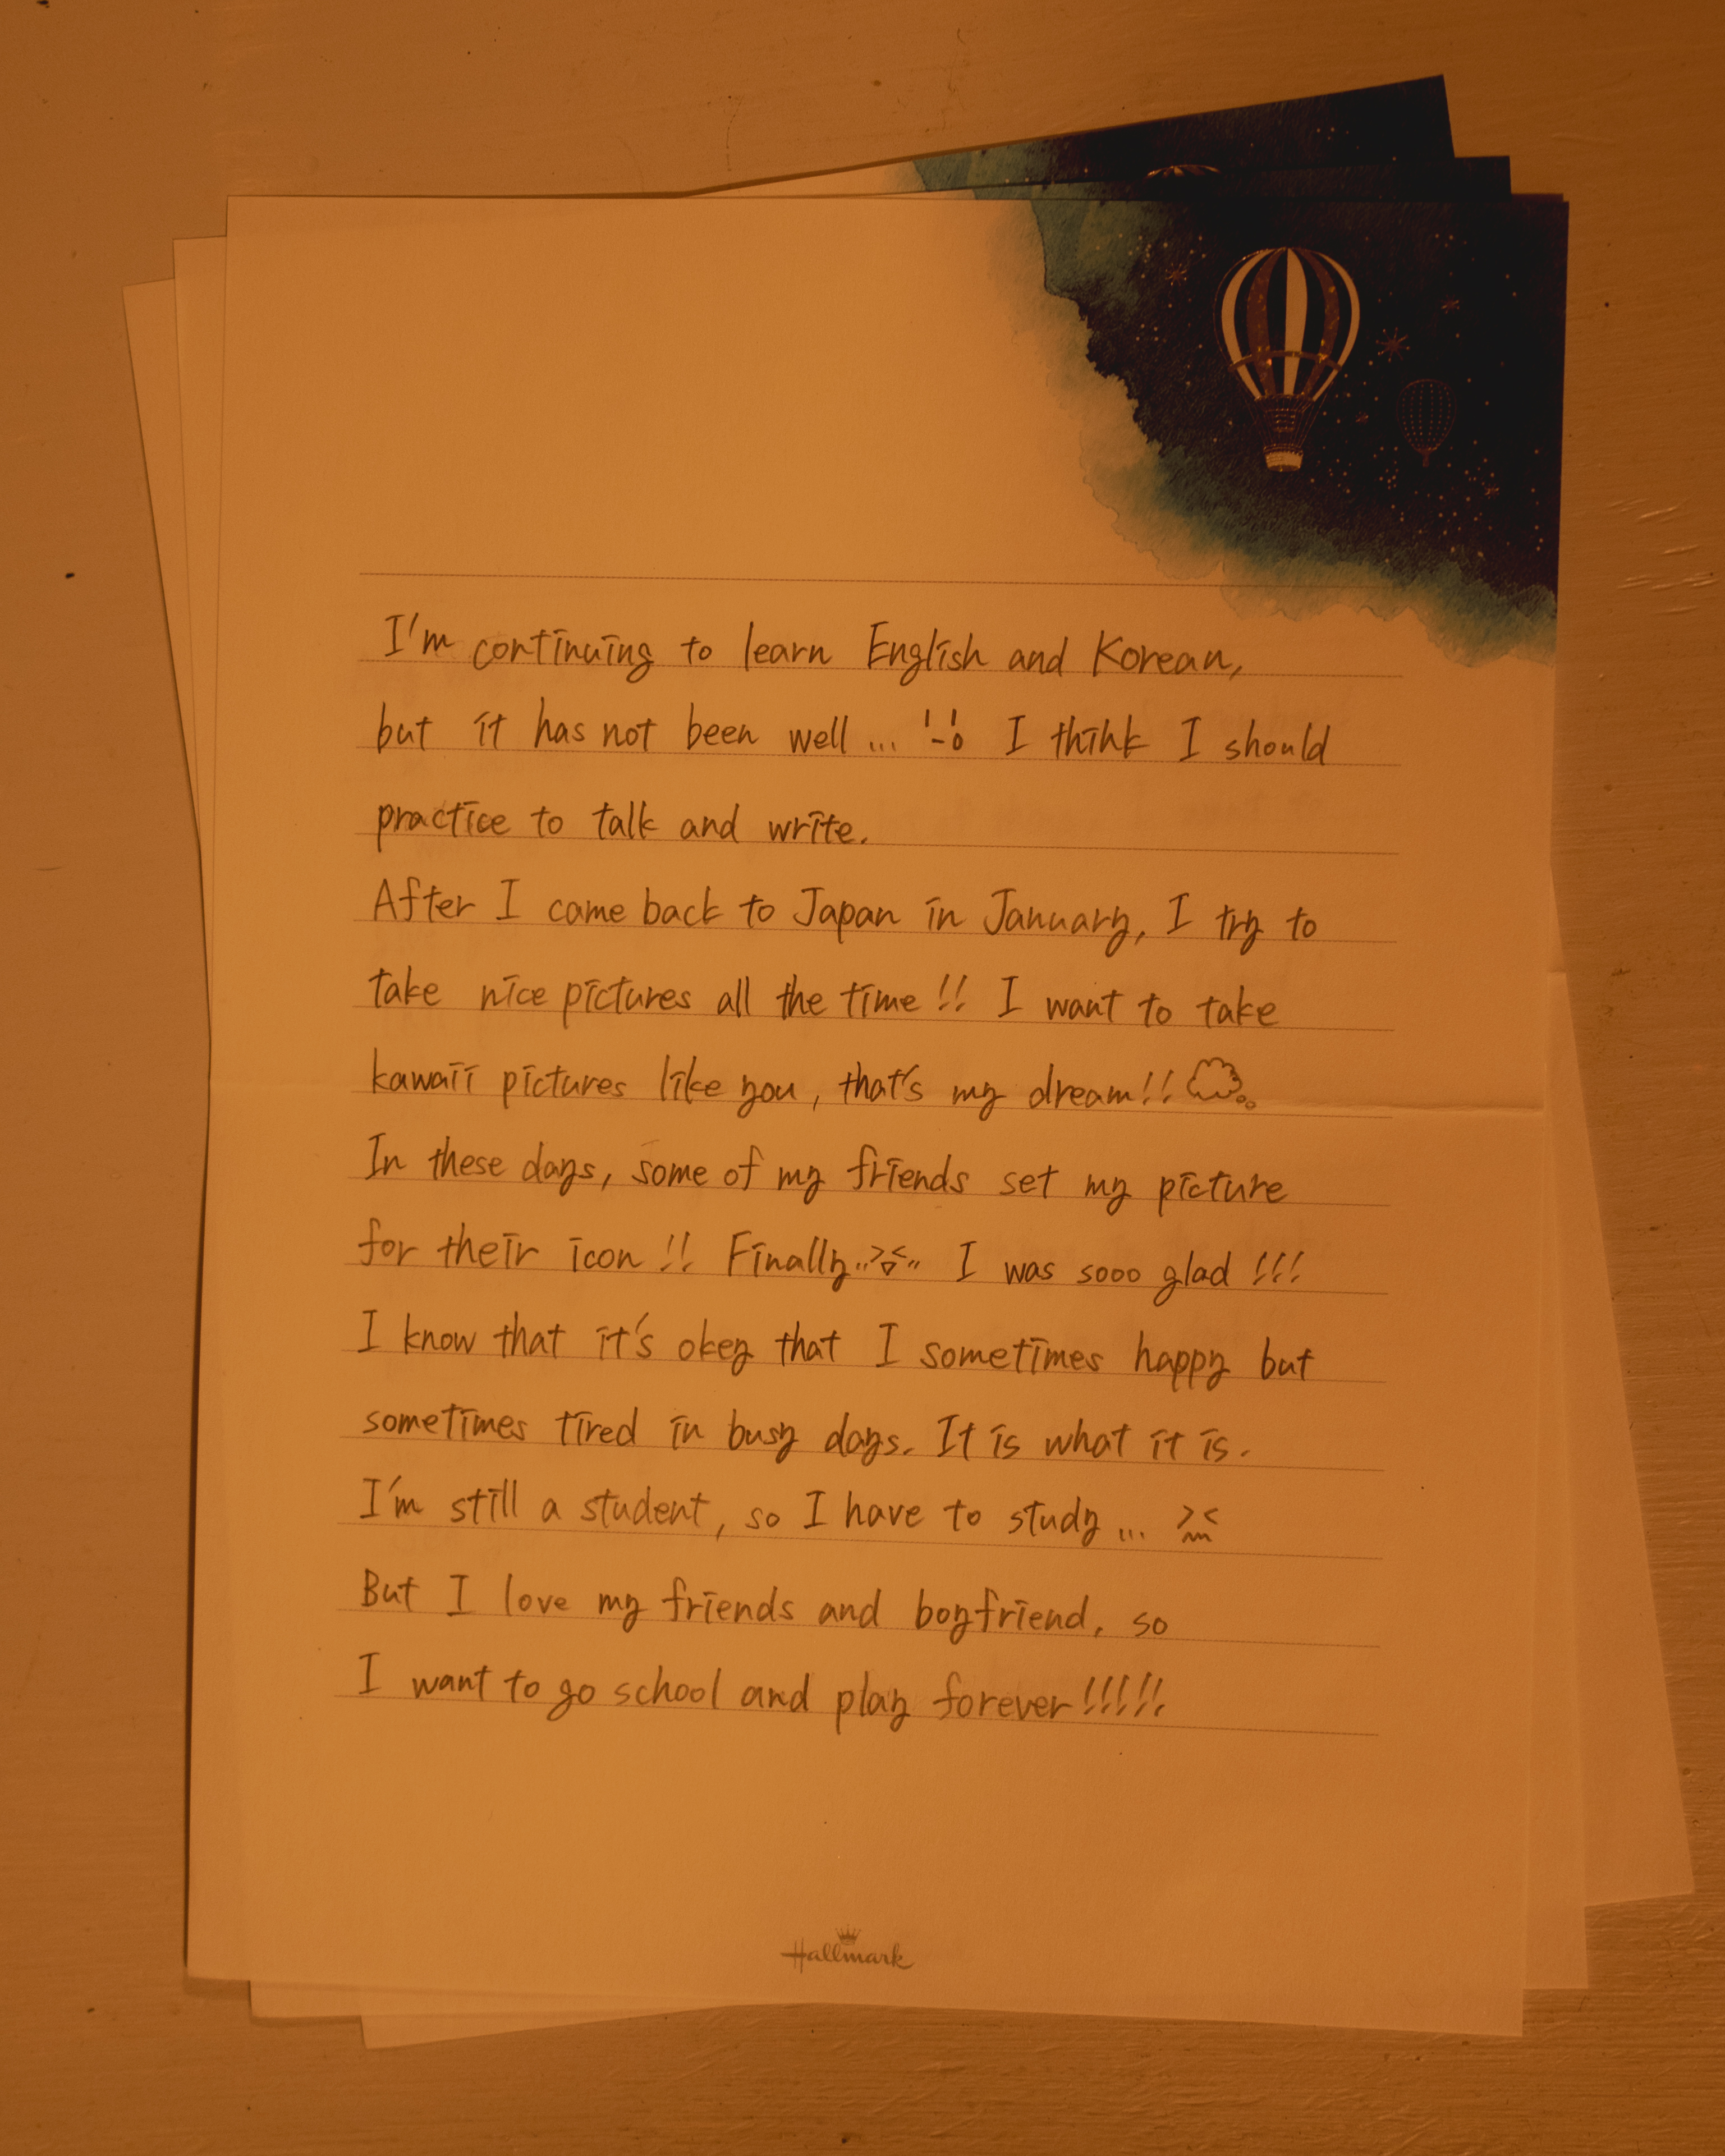 I'm continuing to learn English and Korean,
but it has not been well... I think I should
practice to talk and write.
After I came back to Japan in January, I try to
take nice pictures all the time!! I want to take
kawaii pictures like you, that's my dream!!
In these days, some of my friends set my picture
for their icon!! Finally I was sooo glad!!!
I know that it's okey that I sometimes happy but
sometimes tired in busy days. It is what it is.
I'm still a student, so I have to study... ><
But I love my friends and boyfriend, so
I want to go school and play forever!!!!!
Hallmark